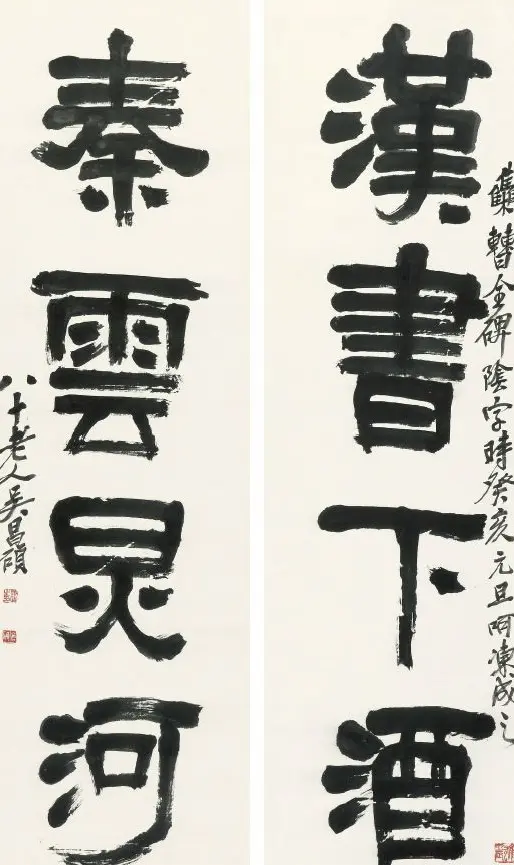 漢書下酒
集曹全碑陰字時癸亥元旦呵凍成之
秦雲炅河
八十老人吳昌碩